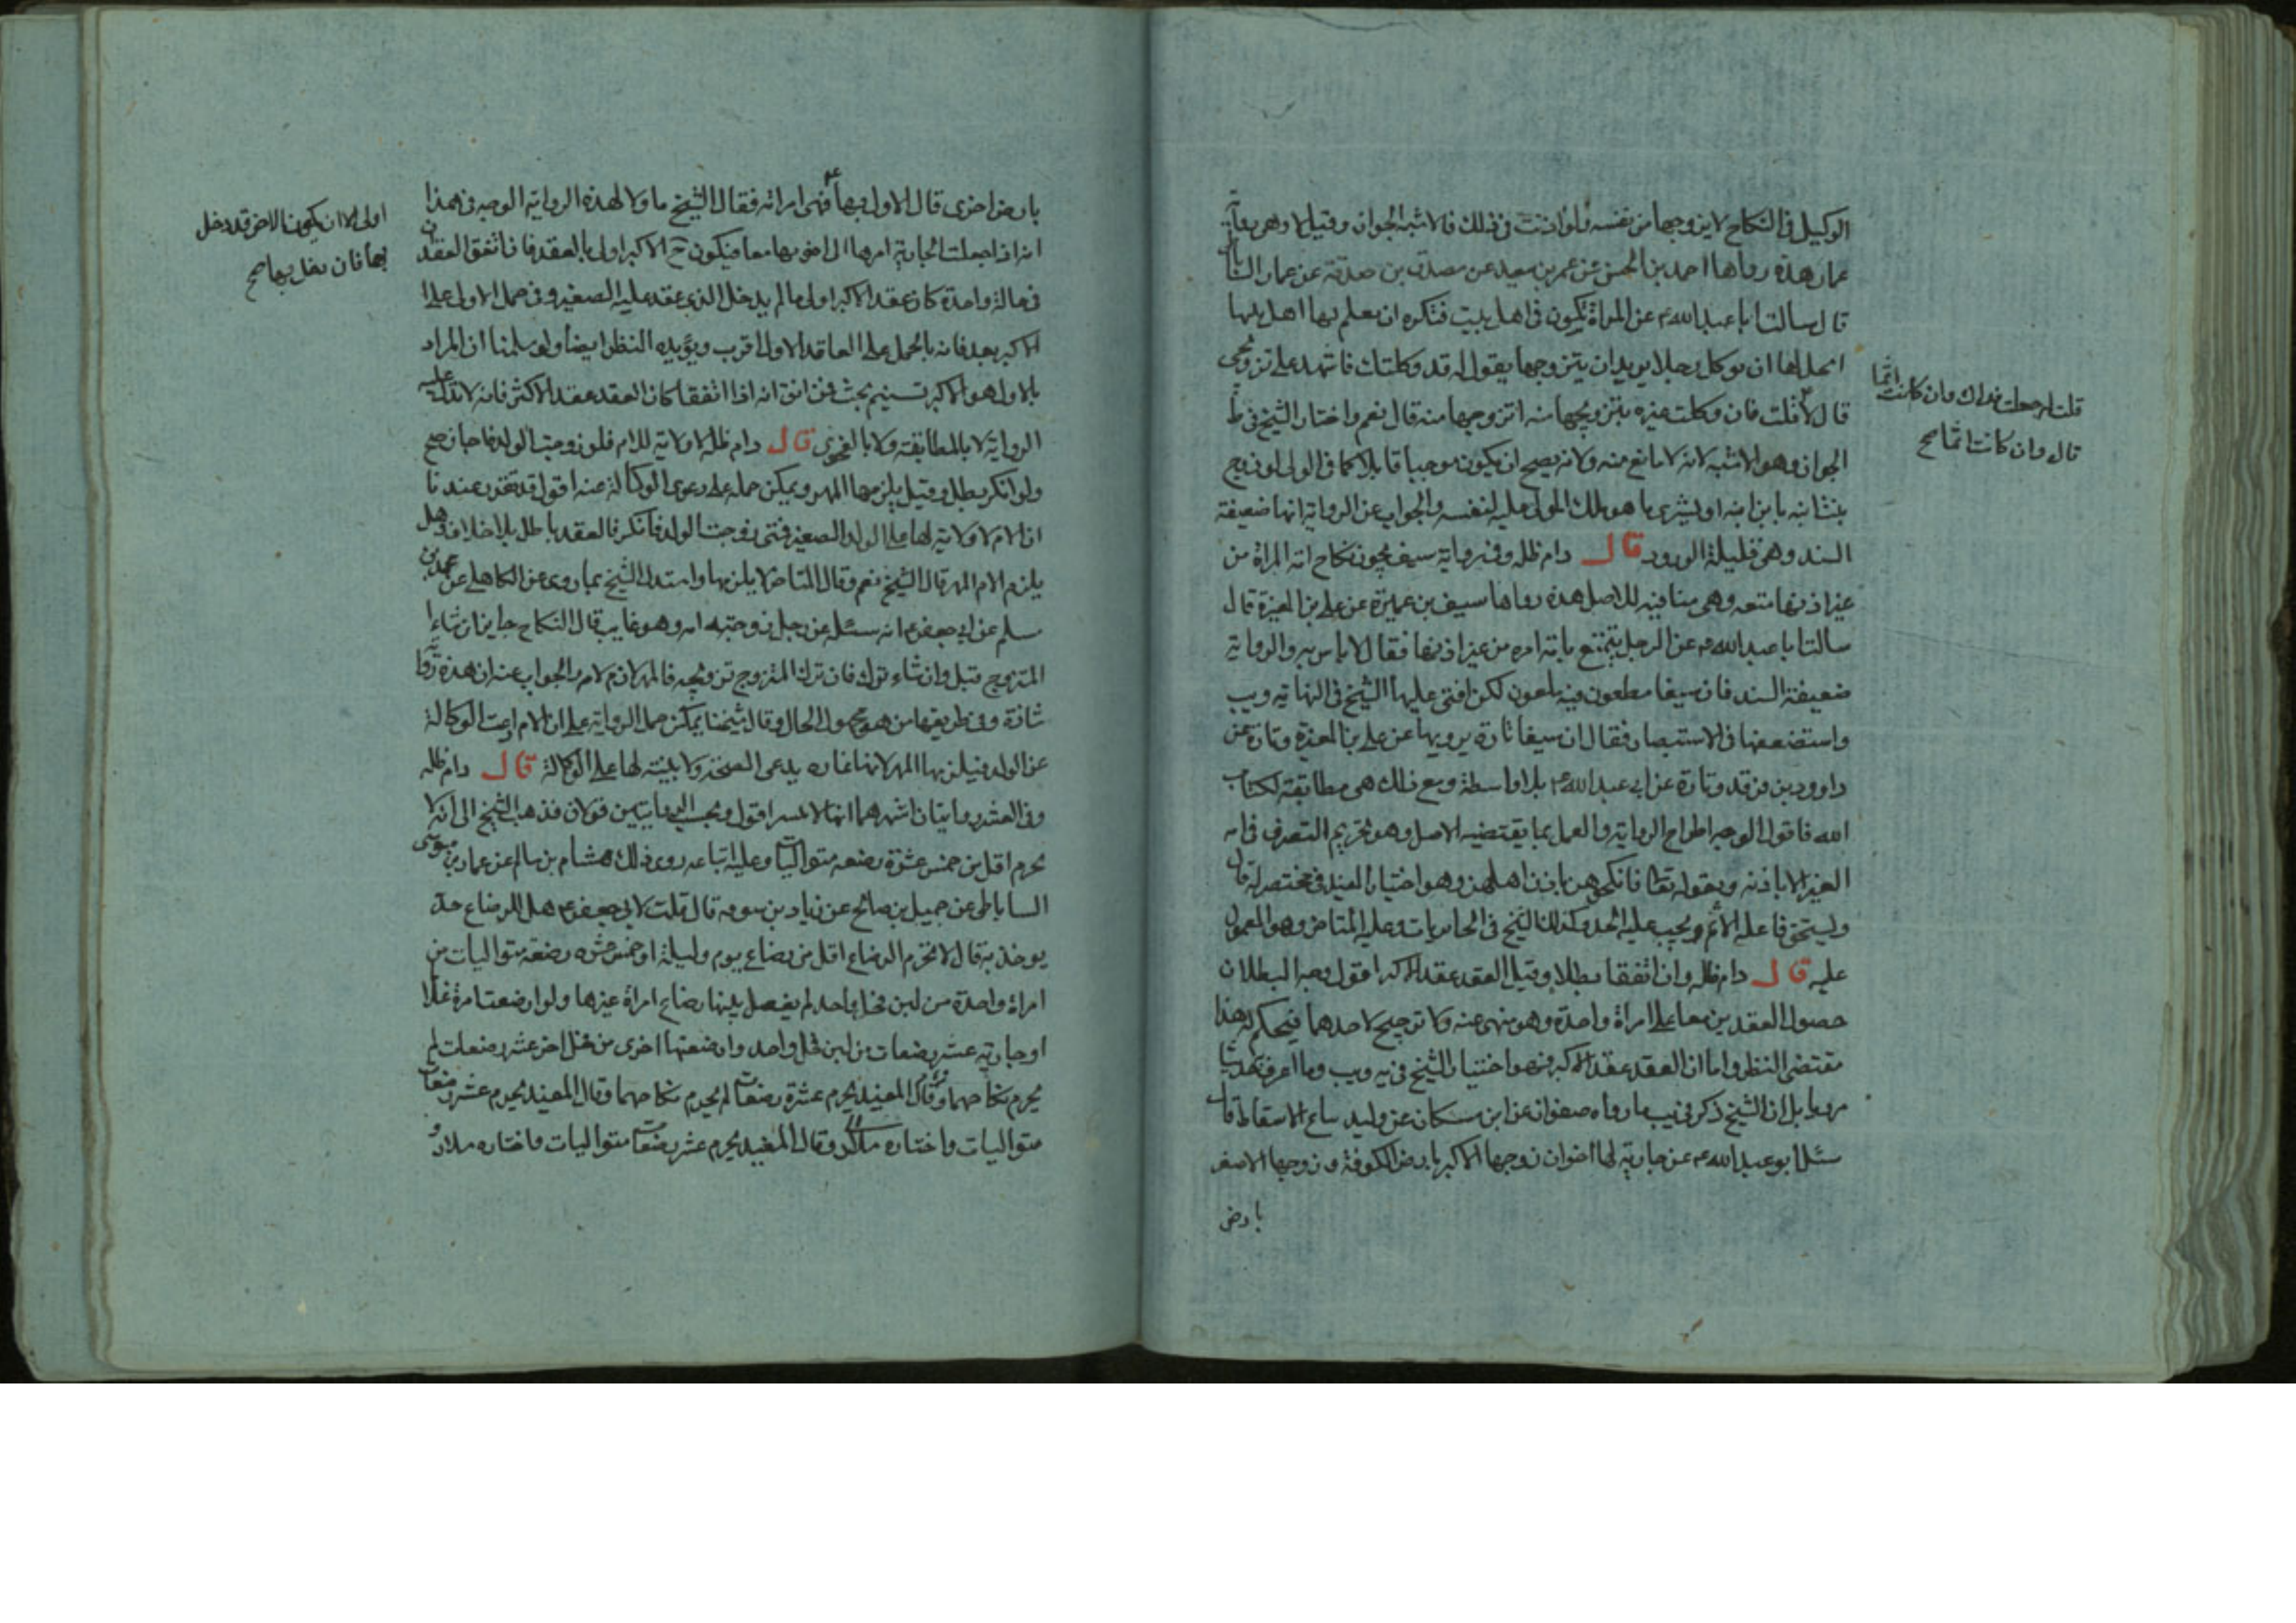 الوكيل فى النكاح لا يزوجها من نفسه فلو اذنت فى ذلك فالاشبه الجواز وقيل لا وهى رواية
عمار هذه رواها احمد بن الحسن عن عمر بن سعيد عن مصدق بن صدقة عن عمار الساباطى
قال سالت ابا عبد الله ع عن المراة تكون فى اهل بيت فتكره ان يعلم بها اهل بيتها
ايحل لها ان توكل رجلا يريد ان يتزوجها يقول له قد وكلتك فاشهد على تزويجى
قال لا قلت فان وكلت غيره بتزويجها منه ايزوجها منه قال نعم واختار الشيخ فى ط
الجواز وهو الاشبه لانه لا مانع منه ولانه يصح ان يكون موجبا قابلا كما فى الولى لو زوج
بنت ابنه بابن ابنه او يشترى ما هو ملك المولى عليه لنفسه والجواب عن الرواية انها ضعيفة
السند وهى قليلة الورود قال دام ظله وفى رواية سيف يجوز نكاح امة المراة من
غير اذنها متعه وهى منافية للاصل هذه رواها سيف بن عميرة عن على بن المغيرة قال
سالت ابا عبد الله ع عن الرجل يتمتع بامة امراة من غير اذنها فقال لا باس به والرواية
ضعيفة السند فان سيفا مطعون فيه ملعون لكن افتى عليها الشيخ فى النهاية ويب
واستضعفها فى الاستبصار فقال ان سيفا تارة يرويها عن على بن المغيرة وتارة عن
داوود بن فرقد وتارة عن ابى عبد الله ع بلا واسطة ومع ذلك هى مطابقة لكتاب
الله فاقول الوجه اطراح الرواية والعمل بما يقتضيه الاصل وهو تحريم التصرف فى امة
الغير الا باذنه وبقوله تعالى فانكحوهن باذن اهلهن وهو اختيار المفيد فى مختصر له قال
ويستحق فاعله الاثم ويجب عليه الحد وكذلك الشيخ فى الحائريات وعليه المتاخر وهو المعمول
عليه قال دام ظله وان اتفقا بطلا وقيل العقد عقد الاكبر اقول وجه البطلان
حصول العقدين معا على امراة واحدة وهو منهى عنه ولا ترجيح لاحدهما فيحكم له هذا
مقتضى النظر واما ان العقد عقد الاكبر فهو اختيار الشيخ فى يه ويب وما اعرف به حديثا
مرويا بل ان الشيخ ذكر فى يب ما رواه صفوان عن ابن مسكان عن وليد بياع الاسقاط قال
سئل ابو عبد الله ع عن جارية لها اخوان زوجها الاكبر بارض الكوفة وزوجها الاصغر
بارض
قلت له جعلت فداك وان كانت ايما
قال وان كانت ايما صح
بارض اخرى قال الاول بها اولى فهى امراته فقال الشيخ ما ولا لهذه الرواية الوجه فى هذا
انه اذا جعلت الجارية امرها الى اخويها معا فيكون ح الاكبر اولى بالعقد فان اتفق العقدان
فى حالة واحدة كان عقد الاكبر اولى ما لم يدخل الذى عقد عليه الصغير وفى حمل الاولى على
الاكبر بعد فانه بالحمل على العاقد الاول اقرب ويؤيده النظر ايضا ولو سلمنا ان المراد
بالاول هو الاكبر فمن اين انه اذا اتفقا كان العقد عقد الاكبر فانه لا تدل عليه
الرواية لا بالمطابقة ولا بالفحوى قال دام ظله لا ولاية للام فلو زوجت الولد فاجاز صح
ولو انكر بطل وقيل يلزمها المهر ويمكن حمله على دعوى الوكالة عنه اقول قد تقرر عندنا
ان الام لا ولاية لها على الولد الصغير فمتى زوجت الولد فانكر فالعقد باطل بلا خلاف وهل
يلزم الام المهر قال الشيخ نعم وقال المتاخر لا يلزمها واستدل الشيخ بما روى عن الكاهلى عن محمد بن
مسلم عن ابى جعفر ع انه سئل عن رجل زوجته امه وهو غايب قال النكاح جايز ان شاء
المتزوج قبل وان شاء ترك فان ترك المتزوج تزويجه فالمهر لازم لامه والجواب عنه ان هذه رواية
شاذة وفى طريقها من هو مجهول الحال وقال شيخنا يمكن حمل الرواية على ان الام ادعت الوكالة
عن الولد فيلزمها المهر لانها غارة بدعى الصحة ولا بينة لها على الوكالة قال دام ظله
وفى العشر روايتان اشهرهما انها لا تنشر اقول وبحسب الروايتين قولان فذهب الشيخ الى انه لا
يحرم اقل من خمس عشرة رضعة متواليات وعليه اتباعه روى ذلك هشام بن سالم عن عمار بن موسى
الساباطى عن جميل بن صالح عن زياد بن سوقه قال قلت لابى جعفر ع هل للرضاع حد
يوخذ به قال لا يحرم الرضاع اقل من رضاع يوم وليلة او خمس عشره رضعة متواليات من
امراة واحدة من لبن فحل واحد لم يفصل بينها رضاع امراة غيرها ولو ارضعت امرة غلاما
او جارية عشر رضعات من لبن فحل واحد وارضعتها اخرى من فحل اخر عشر رضعات لم
يحرم نكاحهما وقال المفيد يحرم عشرة رضعات لم يحرم نكاحهما وقال المفيد يحرم عشر رضعات
متواليات واختاره سلار وقال المفيد يحرم عشر رضعات متواليات واختاره سلار و
اولى الا ان يكون الاخر قد دخل
بها فان دخل بها صح